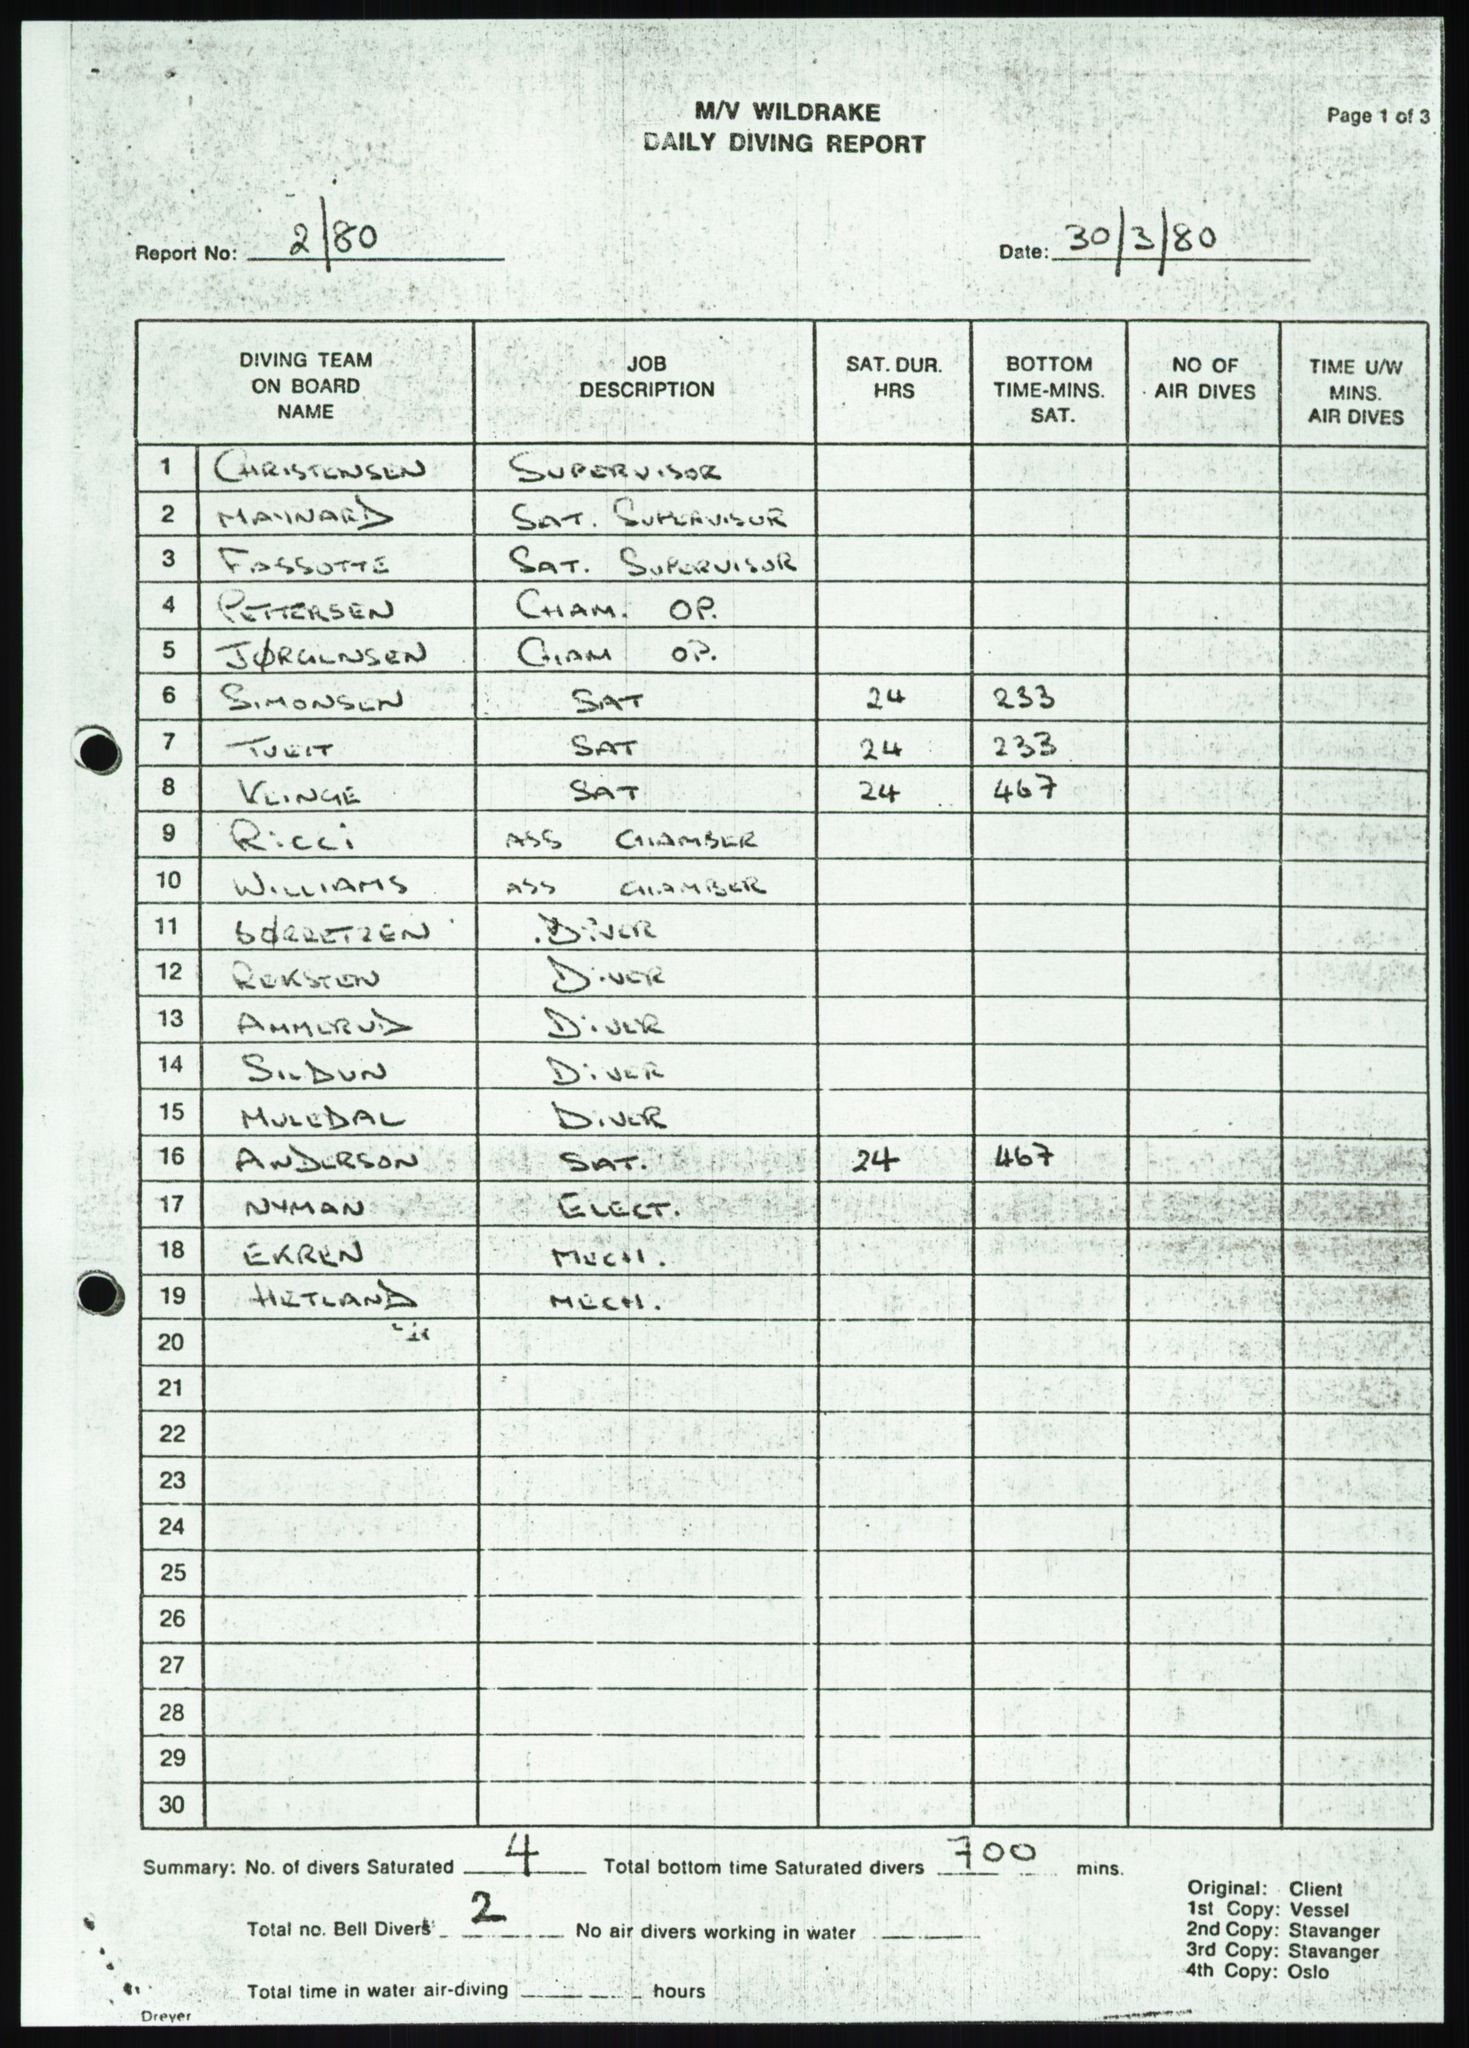 M/V WILDRAKE
DAILY DIVING REPORT
Page 1 of 3
Report No: 2/80
Date: 30/3/80
DIVING TEAM ON BOARD NAME JOB DESCRIPTION SAT. DUR. HRS BOTTOM TIME-MINS. SAT. NO OF AIR DIVES TIME U/W MINS. AIR DIVES
1 CHRISTENSEN SUPERVISOR
2 MAYNARD SAT. SUPERVISOR
3 FASSOTTE SAT. SUPERVISOR
4 PETTERSEN CHAM. OP.
5 JØRGENSEN CHAM OP.
6 SIMONSEN SAT 24 233
7 TVEIT SAT 24 233
8 KLINGE SAT 24 467
9 RICCI ASS CHAMBER
10 WILLIAMS ASS CHAMBER
11 BØRRETZEN DIVER
12 REKSTEN DIVER
13 AMMERUD DIVER
14 SILDUN DIVER
15 MULEDAL DIVER
16 ANDERSON SAT. 24 467
17 NYMAN ELECT.
18 EKREN MECH.
19 HETLAND MECH.
20
21
22
23
24
25
26
27
28
29
30
Summary: No. of divers Saturated 4 Total bottom time Saturated divers 700 mins.
Total no. Bell Divers 2 No air divers working in water
Total time in water air-diving hours
Original: Client
1st Copy: Vessel
2nd Copy: Stavanger
3rd Copy: Stavanger
4th Copy: Oslo
Dreyer